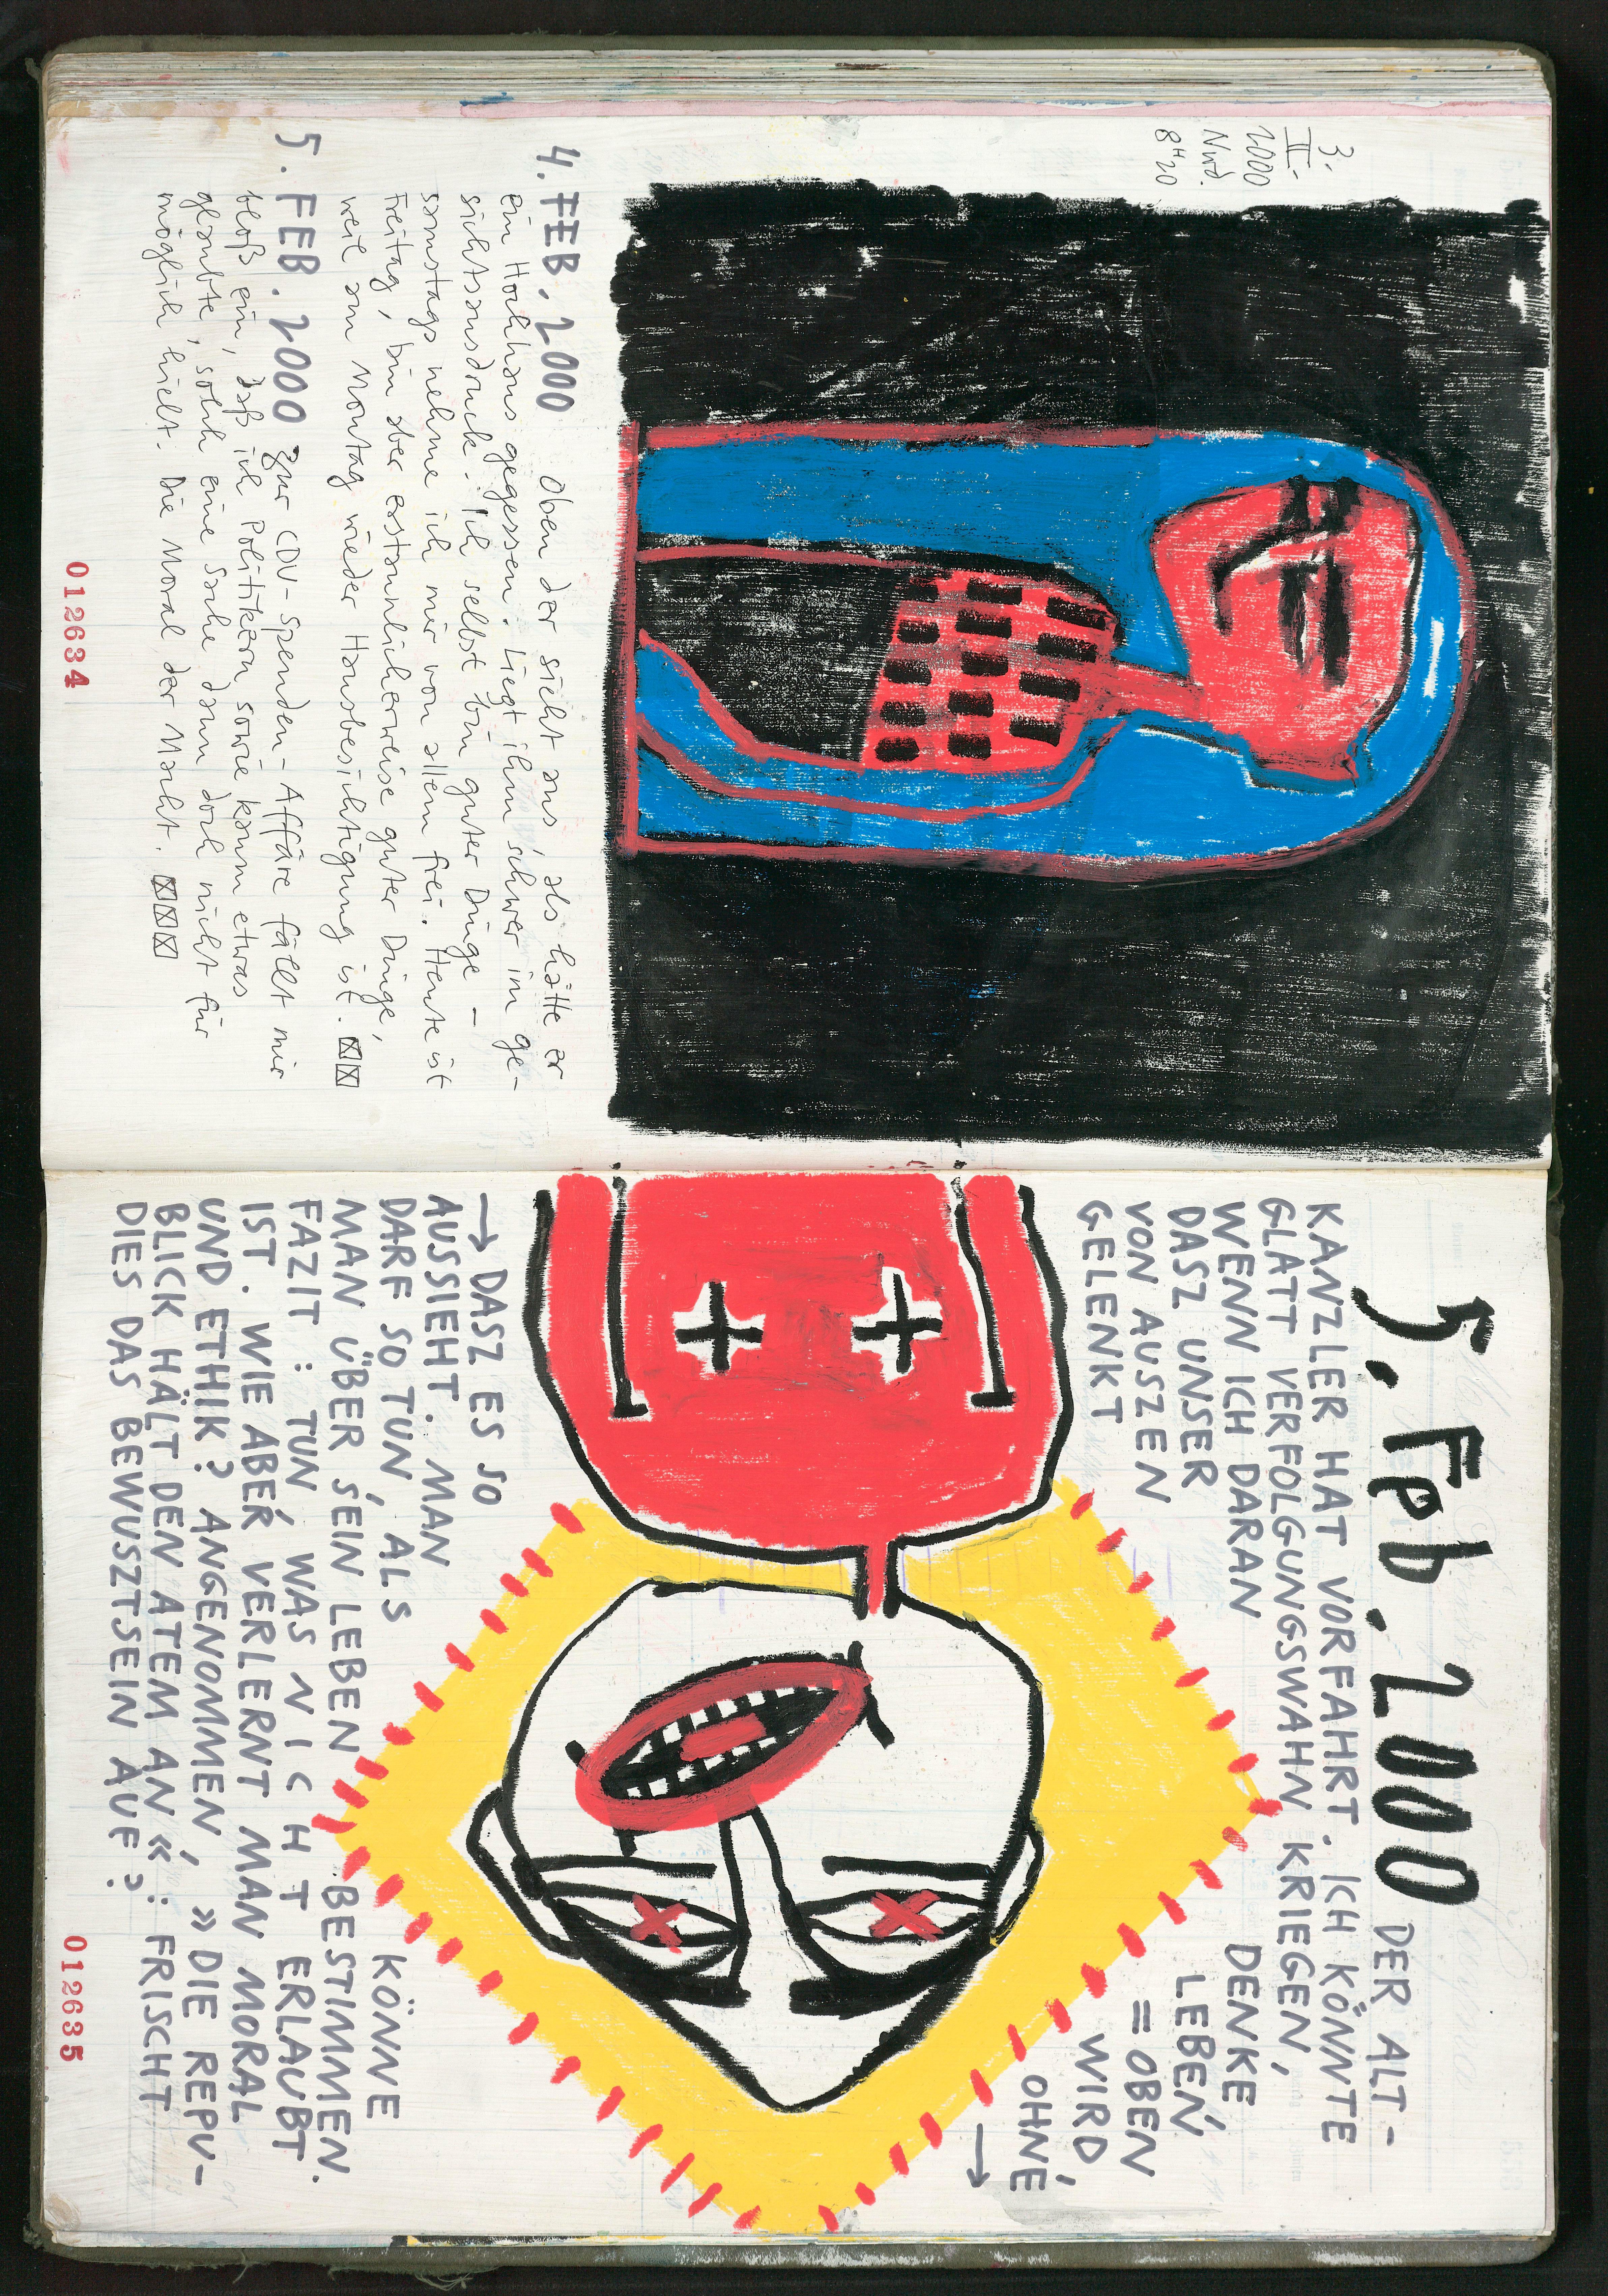 3.
II.
2000
Nrd.
8H20
4. FEB. 2000 Oben der sieht aus als hätte er
ein Hochhaus gegessen. Liegt ihm schwer im Ge-
sichtsausdruck. Ich selbst bin guter Dinge –
samstags nehme ich mir von allem frei. Heute ist
Freitag, bin aber erstaunlicherweise guter Dinge,
weil am Montag wieder Hausbesichtigung ist.
5. FEB. 2000 Zur CDU-Spenden-Affäre fällt mir
bloß ein, daß ich Politikern sowie kaum etwas
glaubte, solch eine Sache dann doch nicht für
möglich hielt. Die Moral der Macht.
012634
5. Feb. 2000 DER ALT-
KANZLER HAT VORFAHRT. ICH KÖNNTE
GLATT VERFOLGUNGSWAHN KRIEGEN,
WENN ICH DARAN DENKE
DASZ UNSER LEBEN
VON AUSZEN = OBEN
GELENKT WIRD,
OHNE
→
→ DASZ ES SO
AUSSIEHT. MAN
DARF SO TUN, ALS KÖNNE
MAN ÜBER SEIN LEBEN BESTIMMEN.
FAZIT: TUN, WAS NICHT ERLAUBT
IST. WIE ABER VERLERNT MAN MORAL
UND ETHIK? ANGENOMMEN, »DIE REPU-
BLICK HÄLT DEN ATEM AN«: FRISCHT
DIES DAS BEWUSZTSEIN AUF?
012635